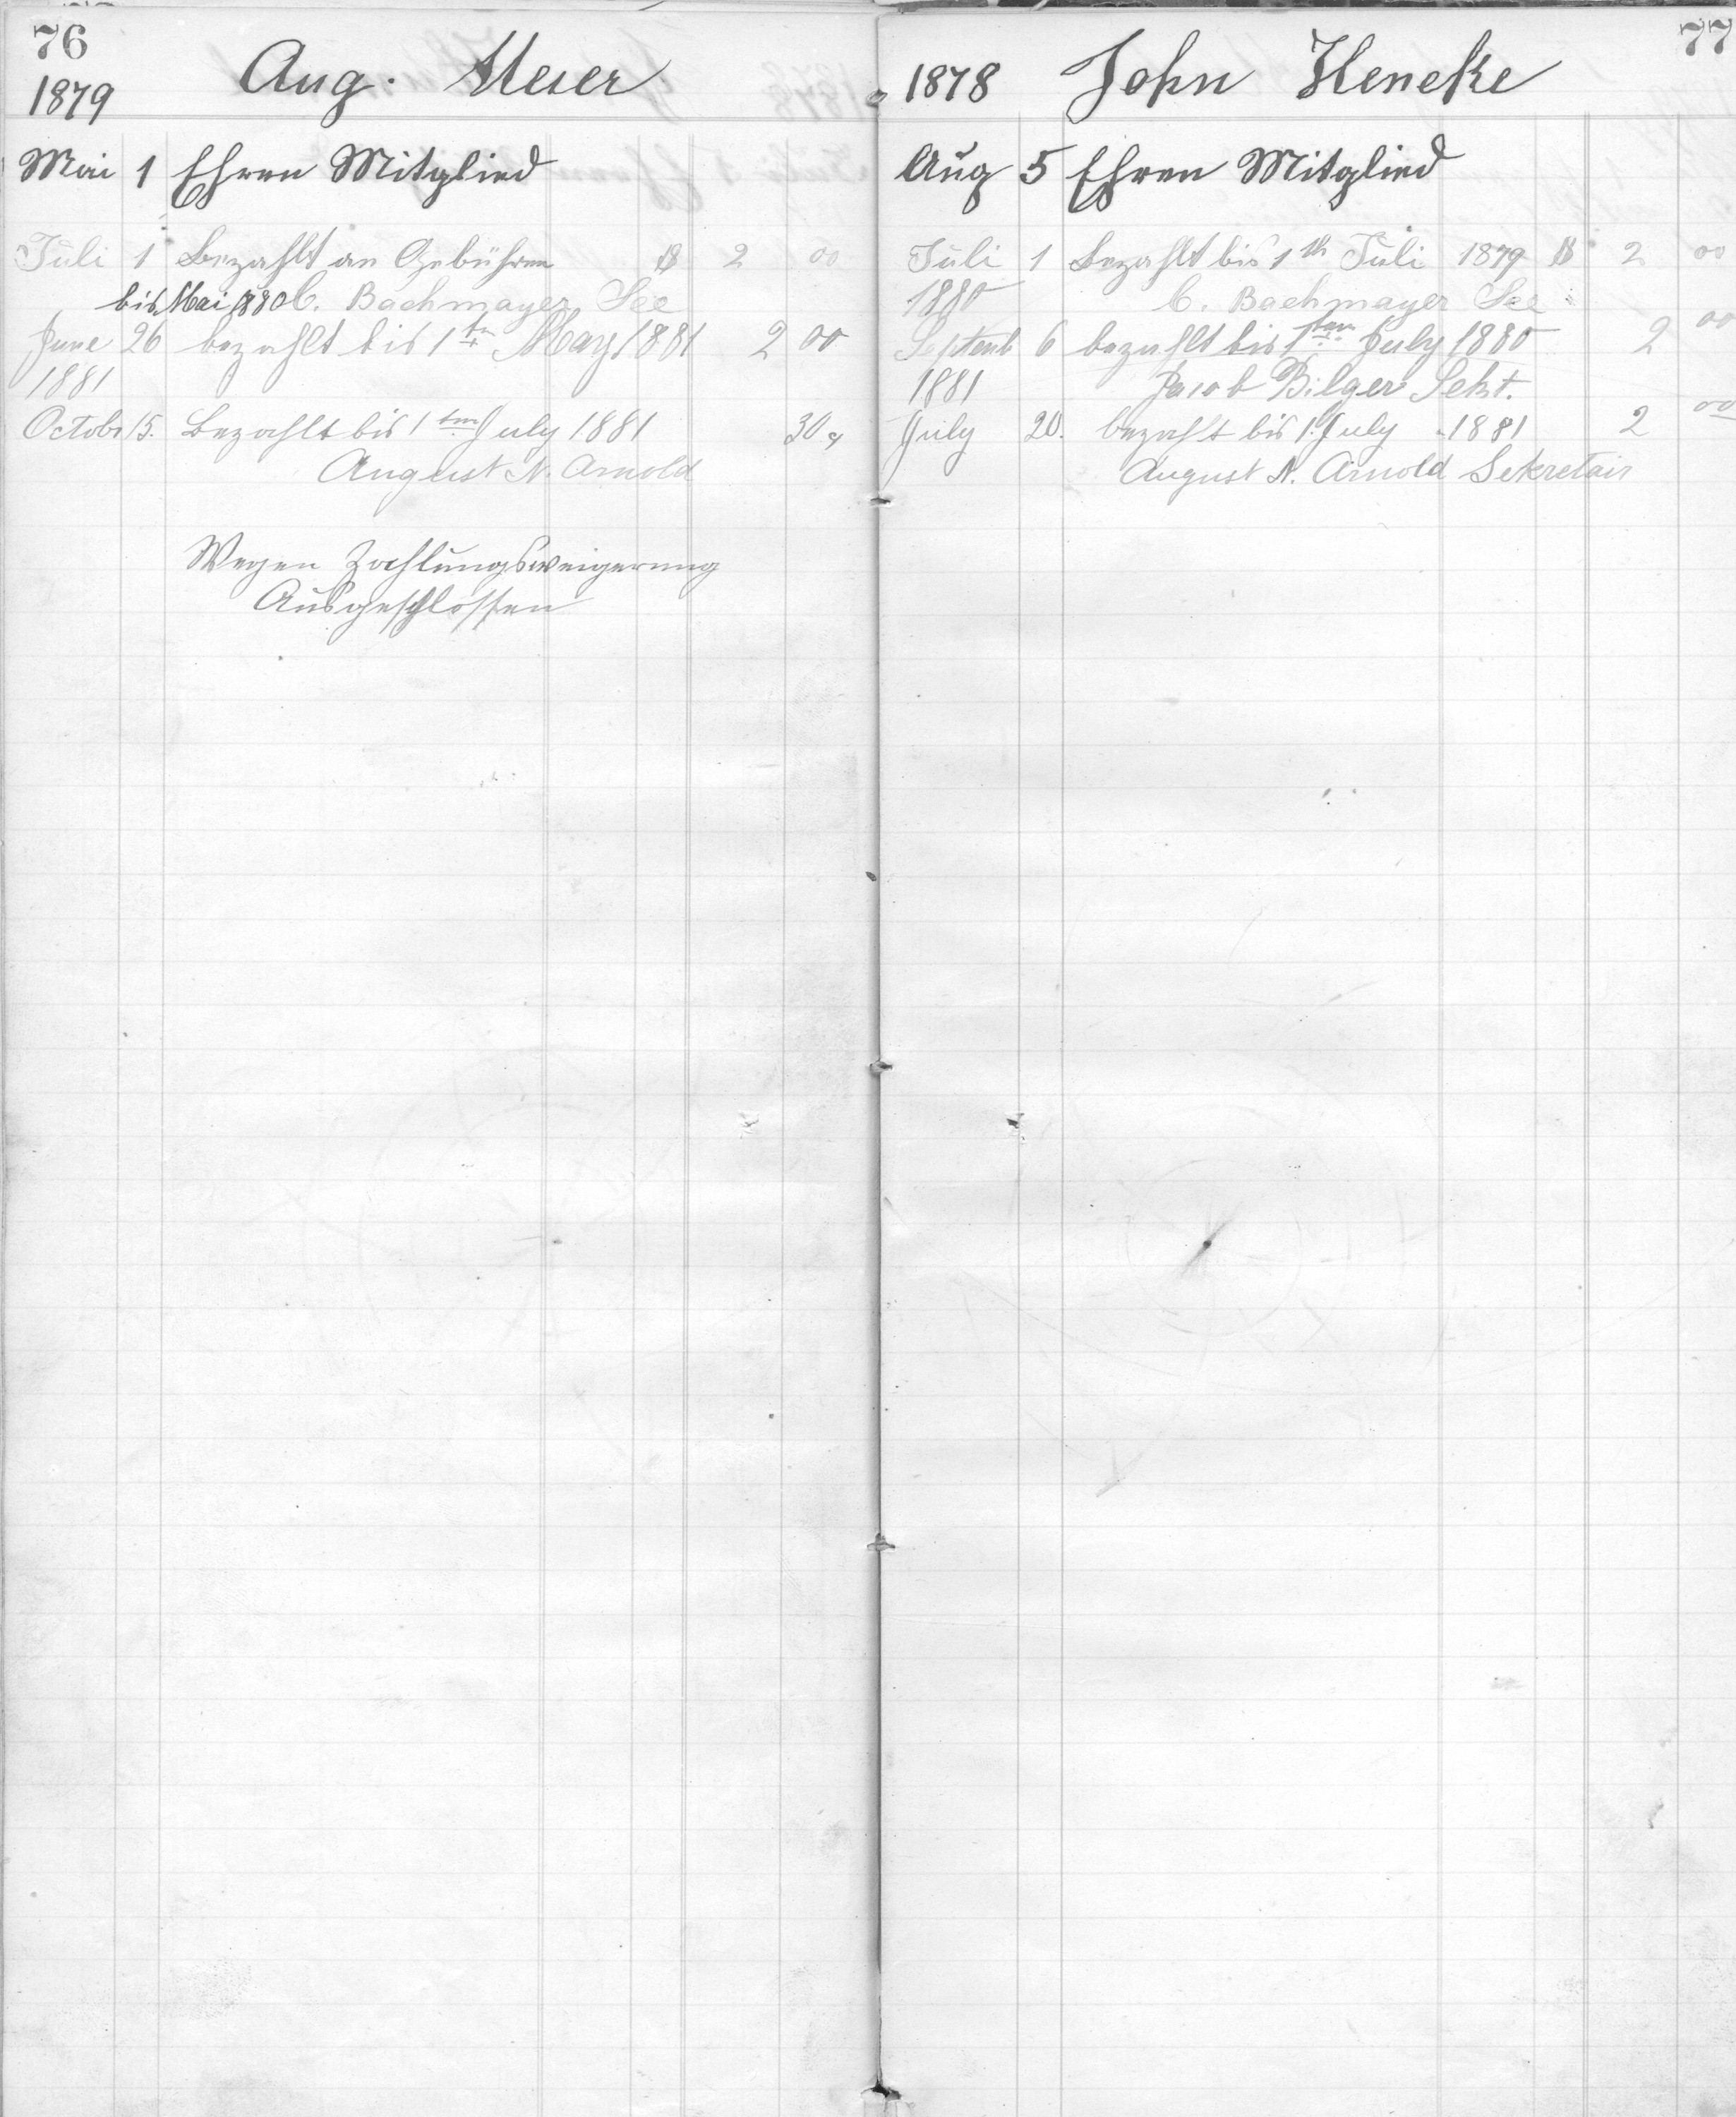 76
1879 Aug. Meier
Mai 1 Ehren Mitglied
Juli 1 Bezahlt an Gebühren $ 2 00
bis Mai 1880 C. Bachmayer Sec
June 26 bezahlt bis 1ten May 1881 2 00
1881
Octobr 15. Bezahlt bis 1ten July 1881 30 c
August N. Arnold
Wegen Zahlungsweigerung
Ausgeschlossen
77
1878 John Heneke
Aug 5 Ehren Mitglied
Juli 1 Bezahlt bis 1th Juli 1879 $ 2 00
1880 C. Bachmayer Sec
Septemb 6 bezahlt bis 1ten July 1880 2 00
1881 Jacob Bilger Sekt.
July 20. bezahlt bis 1. July 1881 2 00
August N. Arnold Sekretair